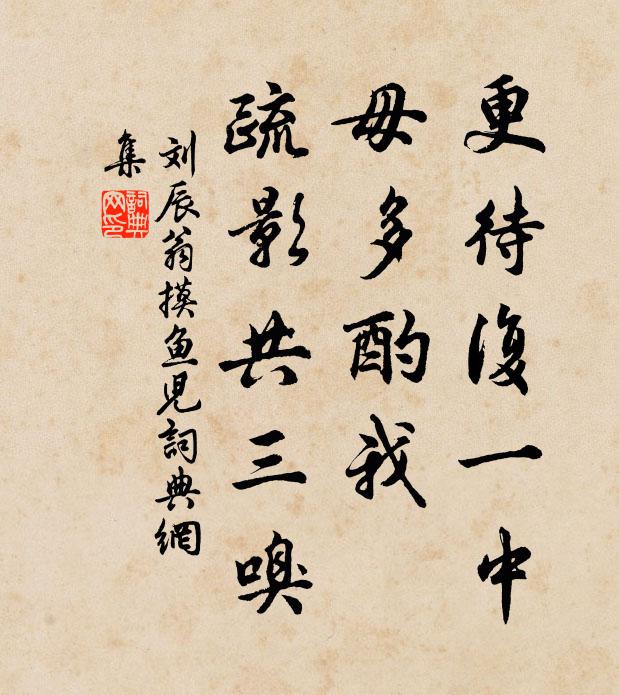 更待復一中
毋多酌我
疏影共三嗅
刘辰翁摸鱼児詞典網
集
詞典网印